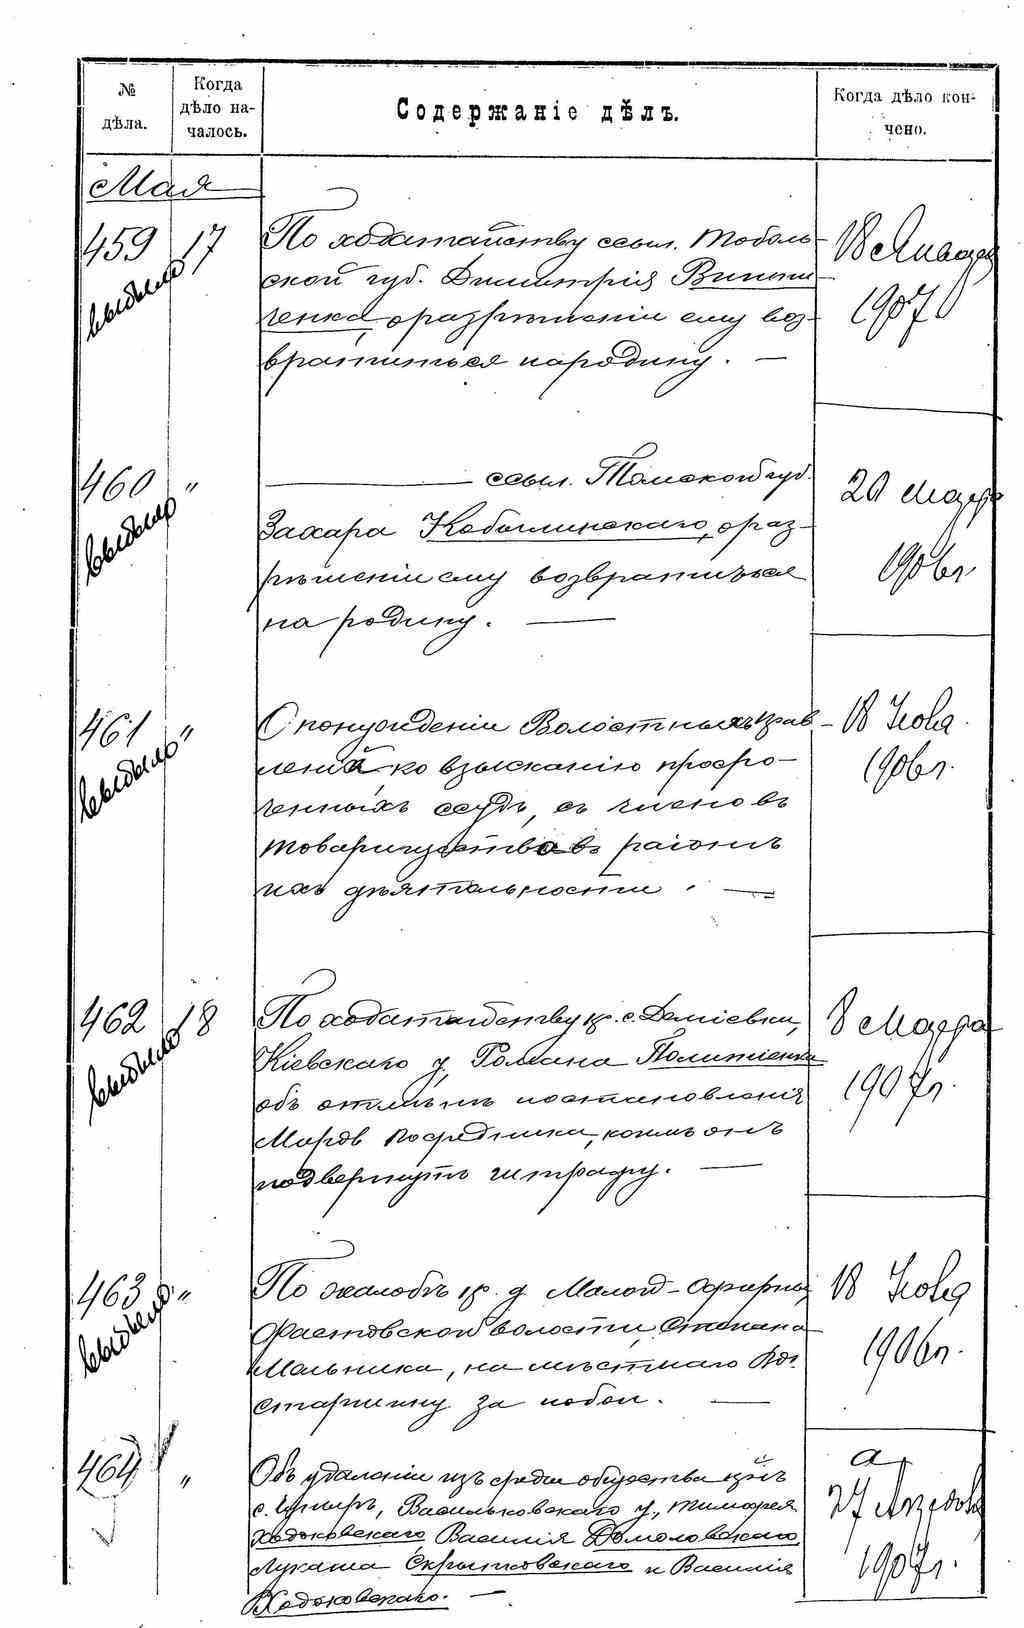 № дѣла.
Когда дѣло началось.
Содержаніе дѣлъ.
Когда дѣло кончено.
Мая
459 17
выбыло
По ходатайству ссыл. Тоболь-
ской губ. Димитрія Винни-
ченка, о разрѣшеніи ему воз-
вратиться на родину. —
18 Января
1907
460 "
выбыло
——— ссыл. Томской губ.
Захара Кобылинскаго, о раз-
рѣшеніи ему возвратиться
на родину. —
20 Марта
1906 г.
461 "
выбыло
О понужденіи Волостныхъ Прав-
леній, ко взысканію просро-
ченныхъ ссудъ, съ членовъ
товарищества въ районѣ
ихъ дѣятельности. —
18 Ноября
1906 г.
462 18
выбыло
По ходатайству кр. с. Деміевки,
Кіевскаго у. Романа
объ отмѣнѣ постановленія
Миров. Посредника, коимъ онъ
подвергнутъ штрафу. —
8 Марта
1907 г.
463 "
выбыло
По жалобѣ кр. д. Малой-Офирны,
Фастовской волости, Степана
Мельника, на мѣстнаго Вол.
старшину за побои. —
18 Ноября
1906 г.
464 "
Объ удаленіи изъ среды общества кр-нъ
с. Васильковскаго у., Тимофея
Ходоковскаго Василія
Лукаша Скрыпковскаго и Василія
Ходоковскаго. —
27
1907 г.